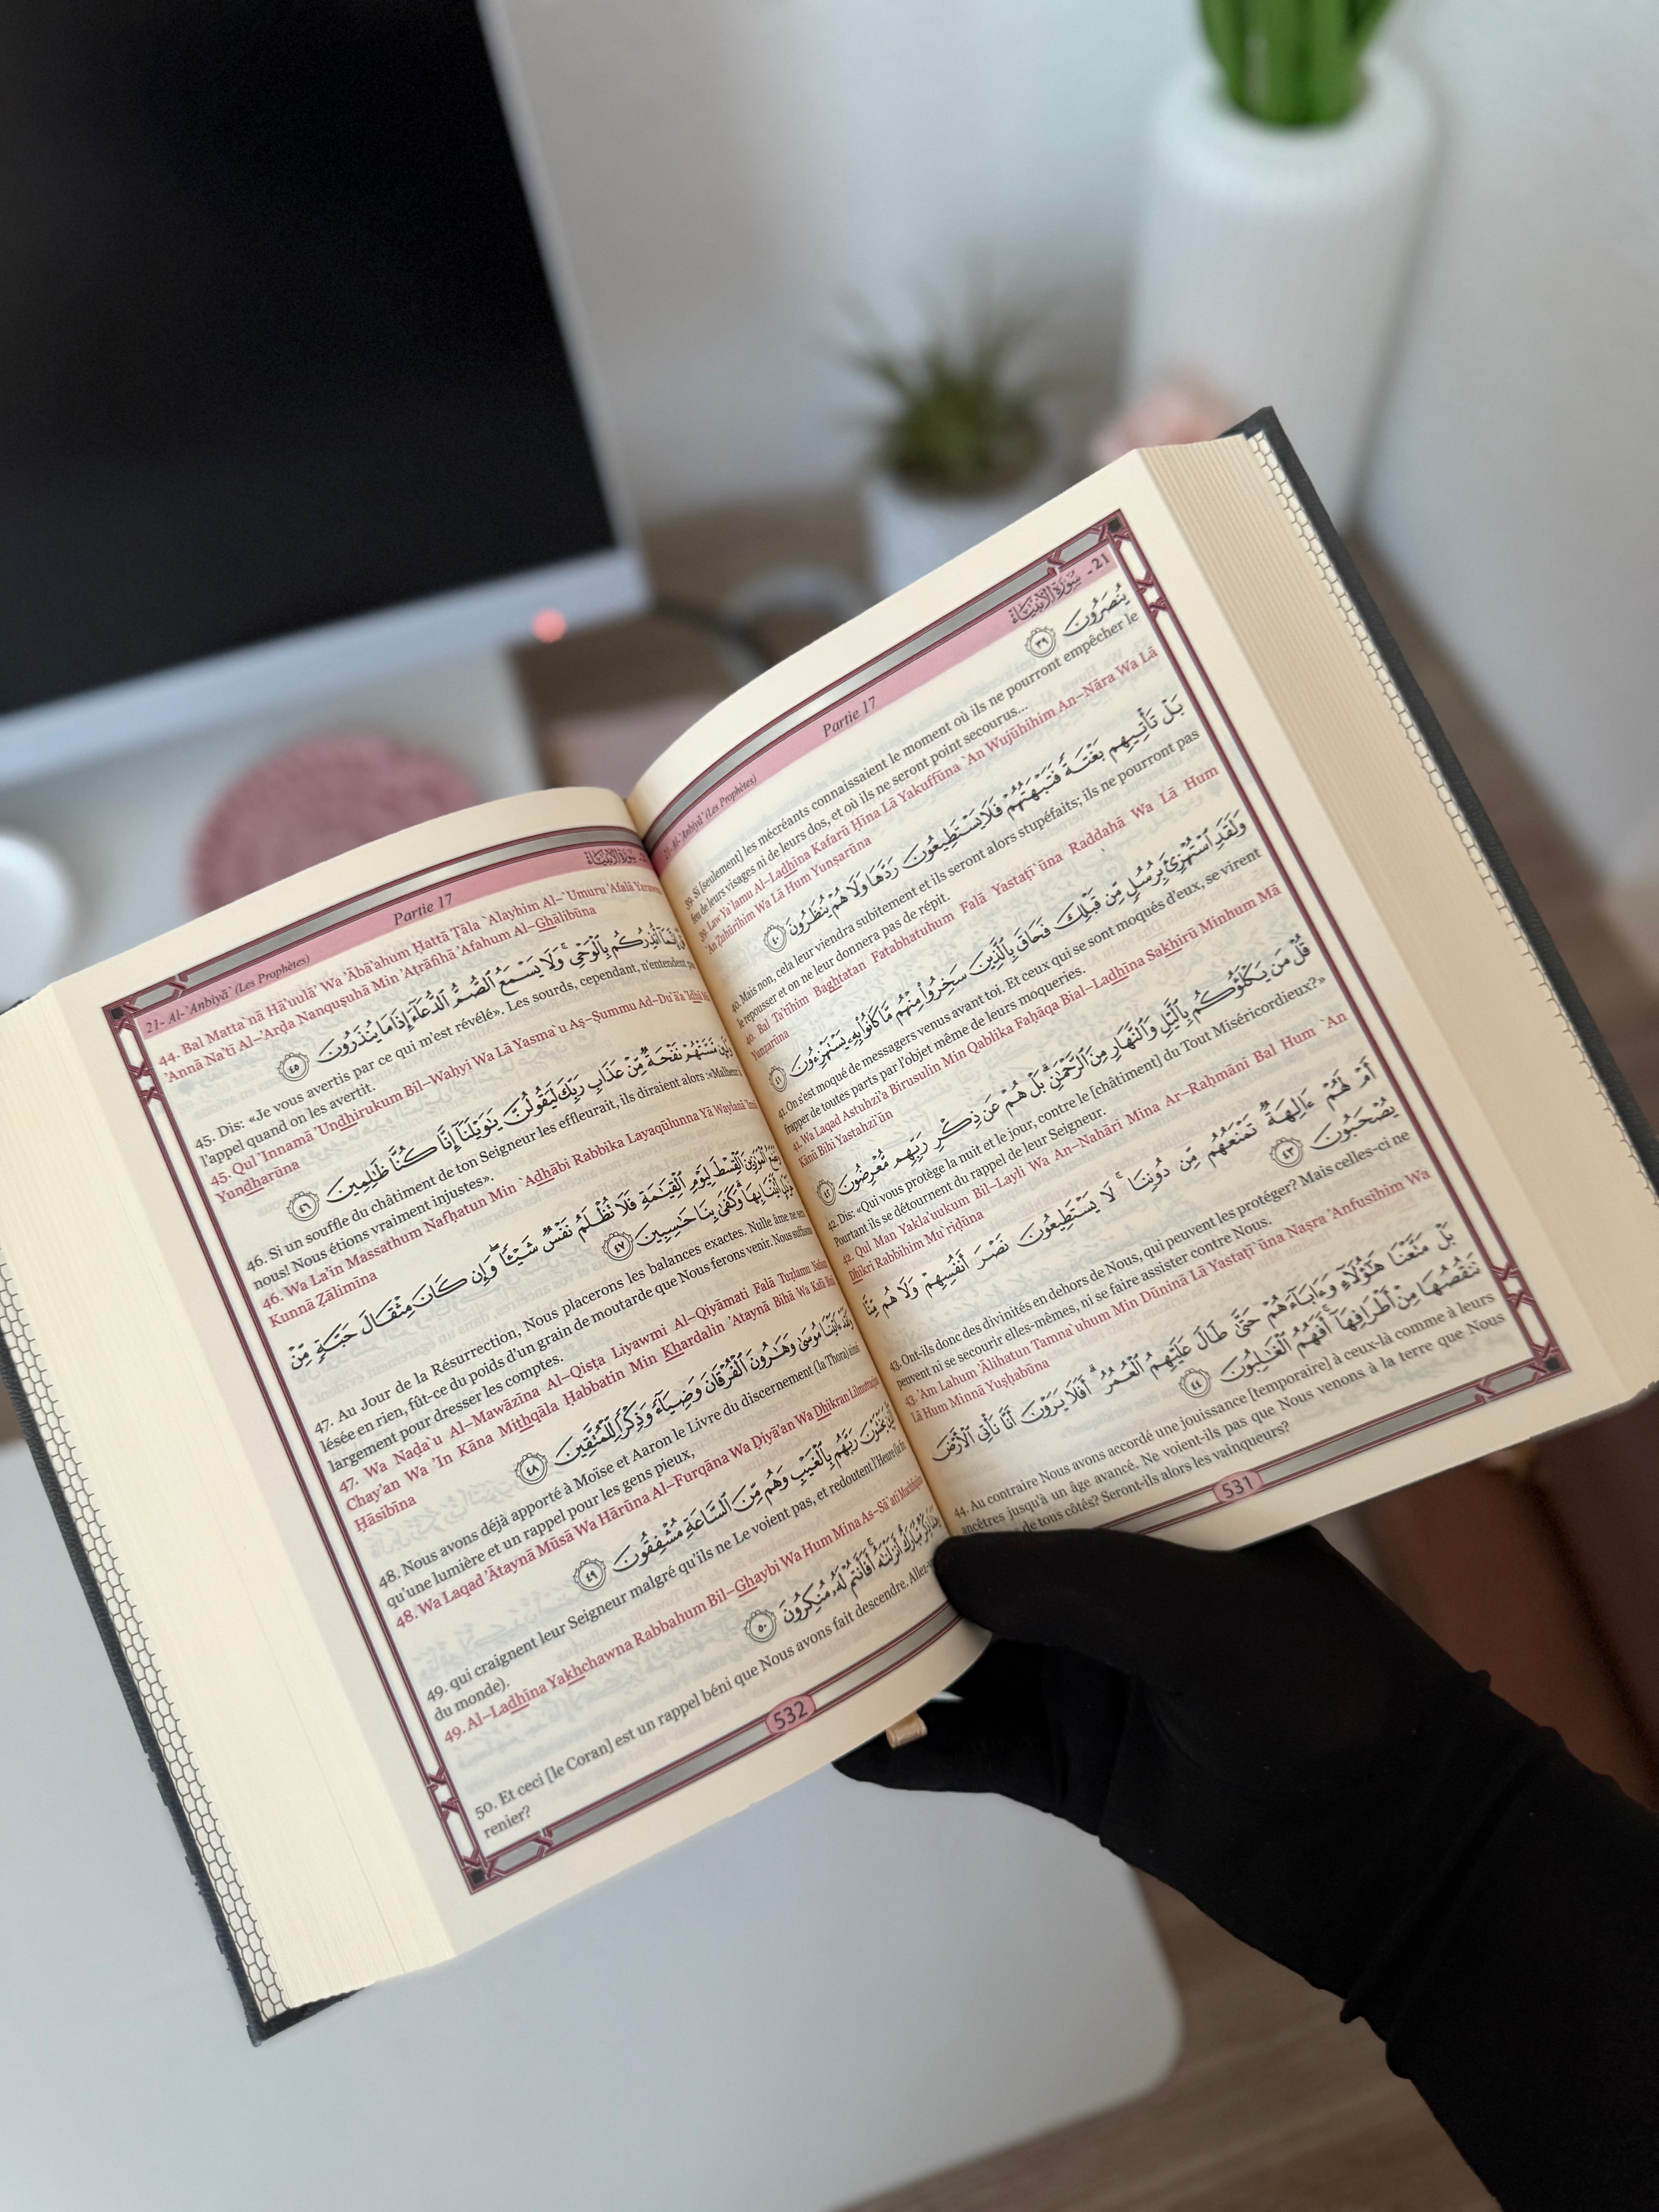 21- Al-'Anbiyā' (Les Prophètes) Partie 17 سُورَةُ الأَنبِيَاءِ - 21
يُنصَرُونَ ٣٩
39. Si [seulement] les mécréants connaissaient le moment où ils ne pourront empêcher le
feu de leurs visages ni de leurs dos, et où ils ne seront point secourus...
39. Law Ya`lamu Al–Ladhīna Kafarū Ĥīna Lā Yakuffūna `An Wujūhihim An–Nāra Wa Lā
`An Žuhūrihim Wa Lā Hum Yunşarūna
بَلْ تَأْتِيهِم بَغْتَةً فَتَبْهَتُهُمْ فَلَا يَسْتَطِيعُونَ رَدَّهَا وَلَا هُمْ يُنظَرُونَ ٤٠
40. Mais non, cela leur viendra subitement et ils seront alors stupéfaits; ils ne pourront pas
le repousser et on ne leur donnera pas de répit.
40. Bal Ta'tīhim Baghtatan Fatabhatuhum Falā Yastaţī`ūna Raddahā Wa Lā Hum
Yunžarūna
وَلَقَدِ ٱسْتُهْزِئَ بِرُسُلٍ مِّن قَبْلِكَ فَحَاقَ بِٱلَّذِينَ سَخِرُوا۟ مِنْهُم مَّا كَانُوا۟ بِهِۦ يَسْتَهْزِءُونَ ٤١
41. On s'est moqué de messagers venus avant toi. Et ceux qui se sont moqués d'eux, se virent
frapper de toutes parts par l'objet même de leurs moqueries.
41. Wa Laqad Astuhzi'a Birusulin Min Qablika Faĥāqa Bial–Ladhīna Sakhirū Minhum Mā
Kānū Bihi Yastahzi'ūn
قُلْ مَن يَكْلَؤُكُم بِٱلَّيْلِ وَٱلنَّهَارِ مِنَ ٱلرَّحْمَٰنِ بَلْ هُمْ عَن ذِكْرِ رَبِّهِم مُّعْرِضُونَ ٤٢
42. Dis: «Qui vous protège la nuit et le jour, contre le [châtiment] du Tout Miséricordieux?»
Pourtant ils se détournent du rappel de leur Seigneur.
42. Qul Man Yakla'uukum Bil–Layli Wa An–Nahāri Mina Ar–Raĥmāni Bal Hum `An
Dhikri Rabbihim Mu`riđūna
أَمْ لَهُمْ ءَالِهَةٌ تَمْنَعُهُم مِّن دُونِنَا لَا يَسْتَطِيعُونَ نَصْرَ أَنفُسِهِمْ وَلَا هُم مِّنَّا
يُصْحَبُونَ ٤٣
43. Ont-ils donc des divinités en dehors de Nous, qui peuvent les protéger? Mais celles-ci ne
peuvent ni se secourir elles-mêmes, ni se faire assister contre Nous.
43. 'Am Lahum 'Ālihatun Tamna`uhum Min Dūninā Lā Yastaţī`ūna Naşra 'Anfusihim Wa
Lā Hum Minnā Yuşĥabūna
بَلْ مَتَّعْنَا هَٰٓؤُلَآءِ وَءَابَآءَهُمْ حَتَّىٰ طَالَ عَلَيْهِمُ ٱلْعُمُرُ أَفَلَا يَرَوْنَ أَنَّا نَأْتِى ٱلْأَرْضَ
نَنقُصُهَا مِنْ أَطْرَافِهَآ أَفَهُمُ ٱلْغَٰلِبُونَ ٤٤
44. Au contraire Nous avons accordé une jouissance [temporaire] à ceux-là comme à leurs
ancêtres jusqu'à un âge avancé. Ne voient-ils pas que Nous venons à la terre que Nous
de tous côtés? Seront-ils alors les vainqueurs?
531
21- Al-'Anbiyā' (Les Prophètes) Partie 17 سُورَةُ الأَنبِيَاءِ
44. Bal Matta`nā Hā'uulā' Wa 'Ābā'ahum Ĥattá Ţāla `Alayhim Al–`Umuru 'Afalā
'Annā Na'tī Al–'Arđa Nanquşuhā Min 'Aţrāfihā 'Afahum Al–Ghālibūna
قُلْ إِنَّمَآ أُنذِرُكُم بِٱلْوَحْىِ وَلَا يَسْمَعُ ٱلصُّمُّ ٱلدُّعَآءَ إِذَا مَا يُنذَرُونَ ٤٥
45. Dis: «Je vous avertis par ce qui m'est révélé». Les sourds, cependant, n'entendent pas
l'appel quand on les avertit.
45. Qul 'Innamā 'Undhirukum Bil–Waĥyi Wa Lā Yasma`u Aş–Şummu Ad–Du`ā'a 'Idhā Mā
Yundharūna
وَلَئِن مَّسَّتْهُمْ نَفْحَةٌ مِّنْ عَذَابِ رَبِّكَ لَيَقُولُنَّ يَٰوَيْلَنَآ إِنَّا كُنَّا ظَٰلِمِينَ ٤٦
46. Si un souffle du châtiment de ton Seigneur les effleurait, ils diraient alors :«Malheur à
nous! Nous étions vraiment injustes».
46. Wa La'in Massathum Nafĥatun Min `Adhābi Rabbika Layaqūlunna Yā Waylanā 'Innā
Kunnā Žālimīna
وَنَضَعُ ٱلْمَوَٰزِينَ ٱلْقِسْطَ لِيَوْمِ ٱلْقِيَٰمَةِ فَلَا تُظْلَمُ نَفْسٌ شَيْـًٔا وَإِن كَانَ مِثْقَالَ حَبَّةٍ مِّنْ
خَرْدَلٍ أَتَيْنَا بِهَا وَكَفَىٰ بِنَا حَٰسِبِينَ ٤٧
47. Au Jour de la Résurrection, Nous placerons les balances exactes. Nulle âme ne sera
lésée en rien, fût-ce du poids d'un grain de moutarde que Nous ferons venir. Nous suffisons
largement pour dresser les comptes.
47. Wa Nađa`u Al–Mawāzīna Al–Qisţa Liyawmi Al–Qiyāmati Falā Tužlamu Nafsun
Chay'an Wa 'In Kāna Mithqāla Ĥabbatin Min Khardalin 'Ataynā Bihā Wa Kafá Binā
Ĥāsibīna
وَلَقَدْ ءَاتَيْنَا مُوسَىٰ وَهَٰرُونَ ٱلْفُرْقَانَ وَضِيَآءً وَذِكْرًا لِّلْمُتَّقِينَ ٤٨
48. Nous avons déjà apporté à Moïse et Aaron le Livre du discernement (la Thora) ainsi
qu'une lumière et un rappel pour les gens pieux,
48. Wa Laqad 'Ātaynā Mūsá Wa Hārūna Al–Furqāna Wa Điyā'an Wa Dhikran Lilmuttaqīna
ٱلَّذِينَ يَخْشَوْنَ رَبَّهُم بِٱلْغَيْبِ وَهُم مِّنَ ٱلسَّاعَةِ مُشْفِقُونَ ٤٩
49. qui craignent leur Seigneur malgré qu'ils ne Le voient pas, et redoutent l'Heure (la fin
du monde).
49. Al–Ladhīna Yakhchawna Rabbahum Bil–Ghaybi Wa Hum Mina As–Sā`ati Muchfiqūna
وَهَٰذَا ذِكْرٌ مُّبَارَكٌ أَنزَلْنَٰهُ أَفَأَنتُمْ لَهُۥ مُنكِرُونَ ٥٠
50. Et ceci [le Coran] est un rappel béni que Nous avons fait descendre. Allez-
renier?
532